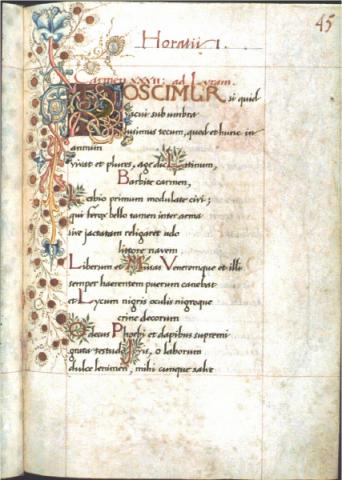 45
Horatii I.
Carmen XXXII: ad Lyram.
POSCIMUR si quid
vacui sub umbra
Lusimus tecum, quod et hunc in
annum
vivat et plures, age dic Latinum,
Barbite carmen,
Lesbio primum modulate civi;
qui ferox bello tamen inter arma
sive jactatam religarat udo
littore navem
Liberum et Musas Veneremque et illi
semper haerentem puerum canebat
et Lycum nigris oculis nigroque
crine decorum
O decus Phoebi et dapibus supremi
grata testudo Jovis, o laborum
dulce lenimen, mihi cunque salve